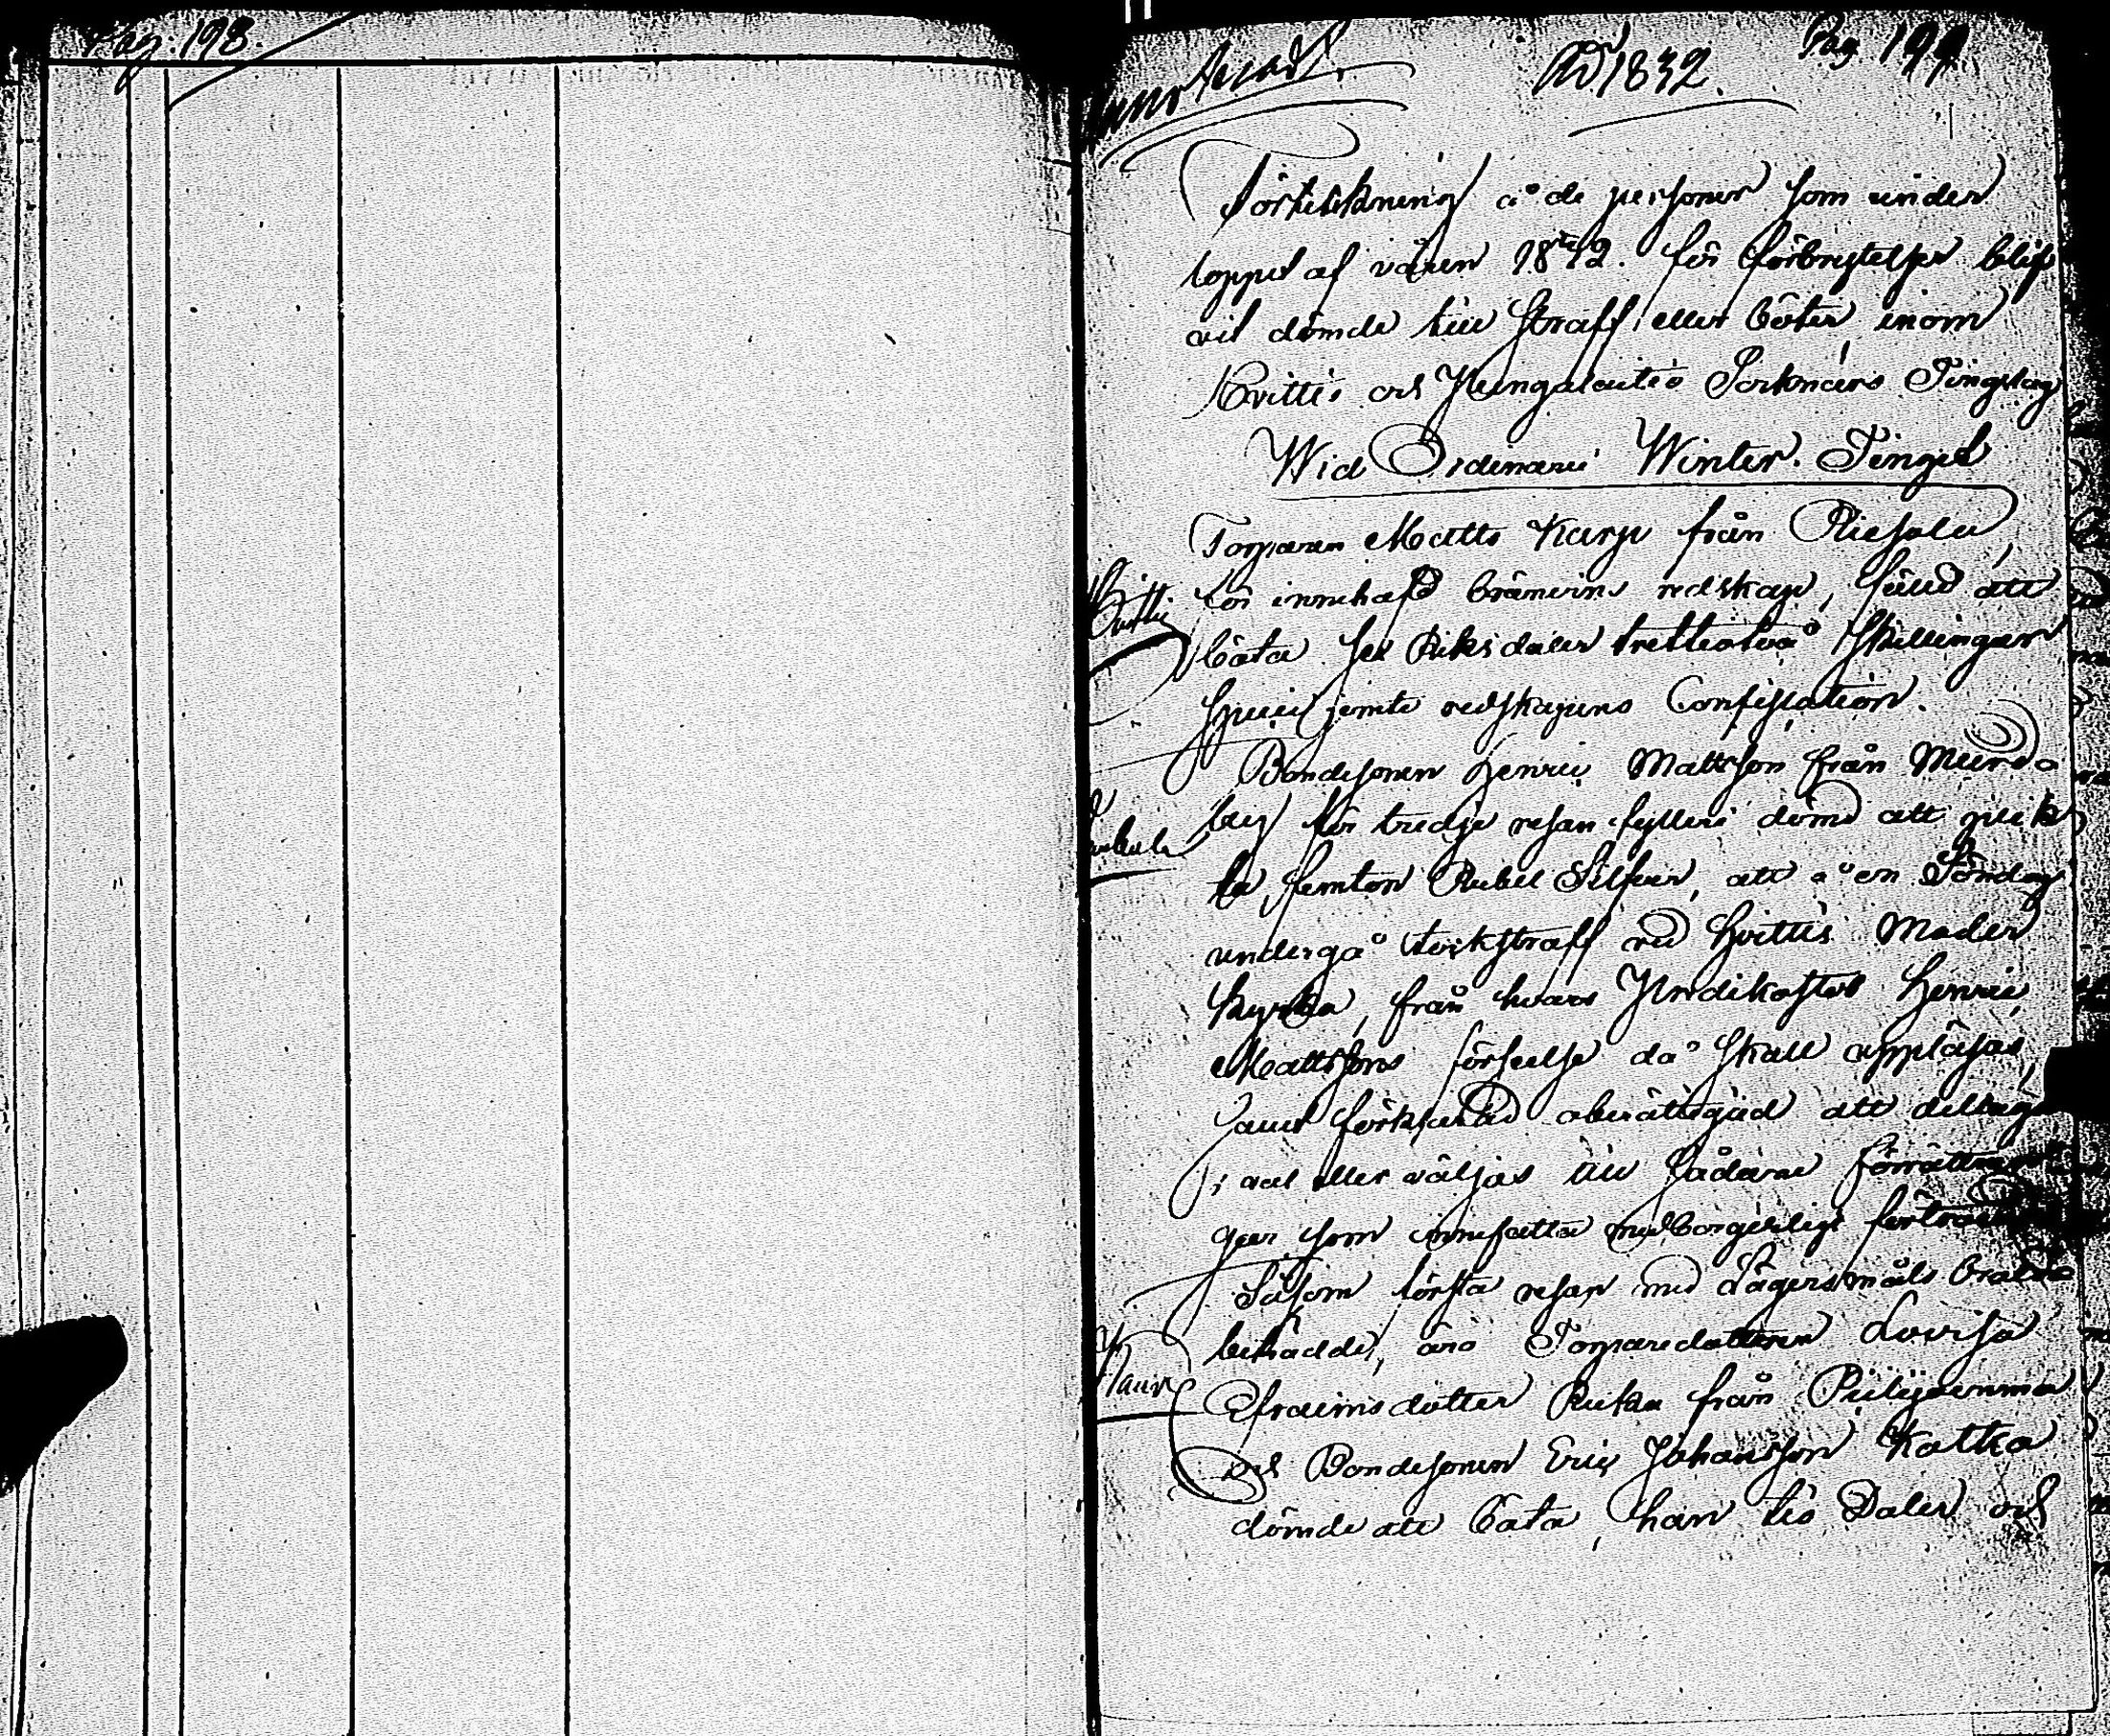 Pag: 198.
Pag 199
Ao 1832.
Förtekning å de personer som under
loppet af våren 1832. för förbrytelser blif
vit dömde till Straff eller böter inom
Hvittis och Sochnars Tingslag
Wid Ordinarie Winter-Tinget
Torparen Matts Karpi från Riesola,
för innehafd brännvins redskap, fäld att
Hvittis
böta sex Riksdaler trettiotvå Skillingar
Specie jemte redskapens Confiscation.
Bondesonen Henric Mattsson från Murdo
by för tredje resan fylleri dömd att plik
ta femton Rubel Silfver, att å en Söndag
undergå stockstraff vid Hvittis Moder
kyrka, från hvars Predikostol Henric
Mattssons förseelse då skall uppläsas,
samt förklarad oberättigad att deltaga
i val eller väljas till sådane förrättnin
gar som innefatta medborgerligt förtroende
Såsom första resan med Lägersmåls brott
beträdde, äro Torparedottren Lovisa
Efraimsdotter Ruka från
och Bondesonen Eric Johansson Katka
dömde att böta, han tio Daler och